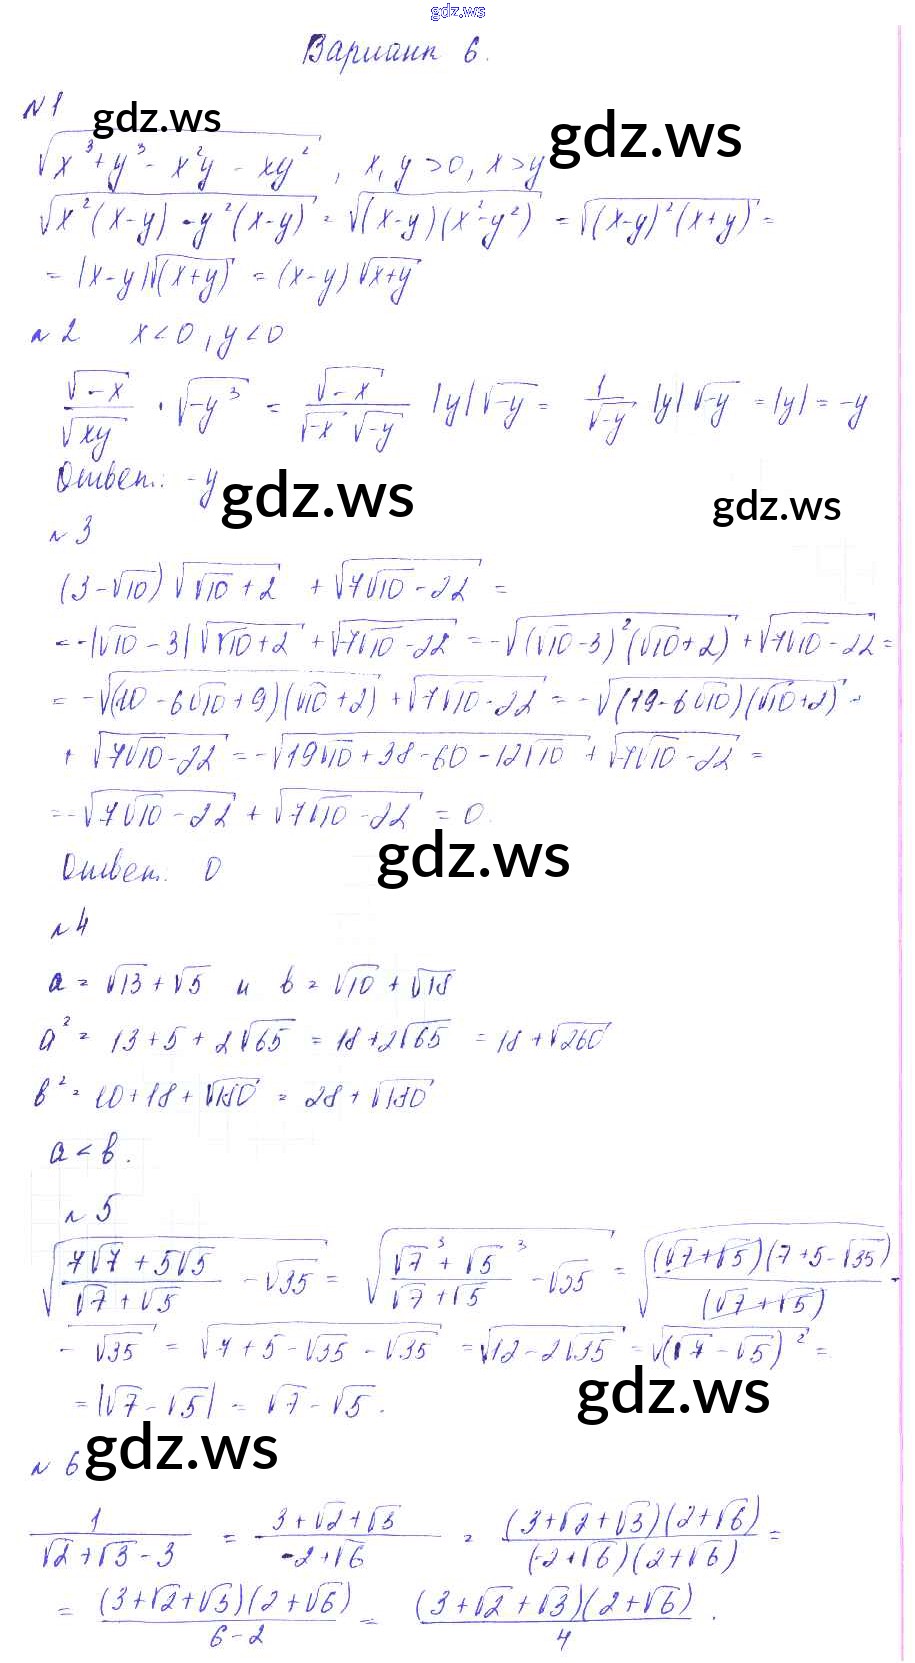 gdz.ws
Вариант 6.
№1
gdz.ws
gdz.ws
√(x³+y³-x²y-xy²), x,y>0, x>y
√(x²(x-y)-y²(x-y)) = √((x-y)(x²-y²)) = √((x-y)²(x+y)) =
= |x-y|√(x+y) = (x-y)√(x+y)
№2 x<0, y<0
√(-x)/√(xy) · √(-y³) = √(-x)/(√(-x) √(-y)) |y|√(-y) = 1/√(-y) |y|√(-y) = |y| = -y
Ответ: -y
gdz.ws
gdz.ws
№3
(3-√10)√(√10+2) + √(7√10-22) =
= -|√10-3|√(√10+2) + √(7√10-22) = -√((√10-3)²(√10+2)) + √(7√10-22) =
= -√((10-6√10+9)(√10+2)) + √(7√10-22) = -√((19-6√10)(√10+2)) +
+ √(7√10-22) = -√(19√10+38-60-12√10) + √(7√10-22) =
= -√(7√10-22) + √(7√10-22) = 0.
gdz.ws
Ответ. 0
№4
a = √13+√5 и b = √10+√18
a² = 13+5+2√65 = 18+2√65 = 18+√260
b² = 10+18+√180 = 28+√180
a < b.
№5
√((7√7+5√5)/(√7+√5) - √35) = √((√7³+√5³)/(√7+√5) - √35) = √((√7+√5)(7+5-√35)/(√7+√5) -
- √35) = √(7+5-√35-√35) = √(12-2√35) = √((√7-√5)²) =
= |√7-√5| = √7-√5.
gdz.ws
gdz.ws
№6
1/(√2+√3-3) = (3+√2+√3)/(-2+√6) = (3+√2+√3)(2+√6)/((-2+√6)(2+√6)) =
= (3+√2+√3)(2+√6)/(6-2) = (3+√2+√3)(2+√6)/4.